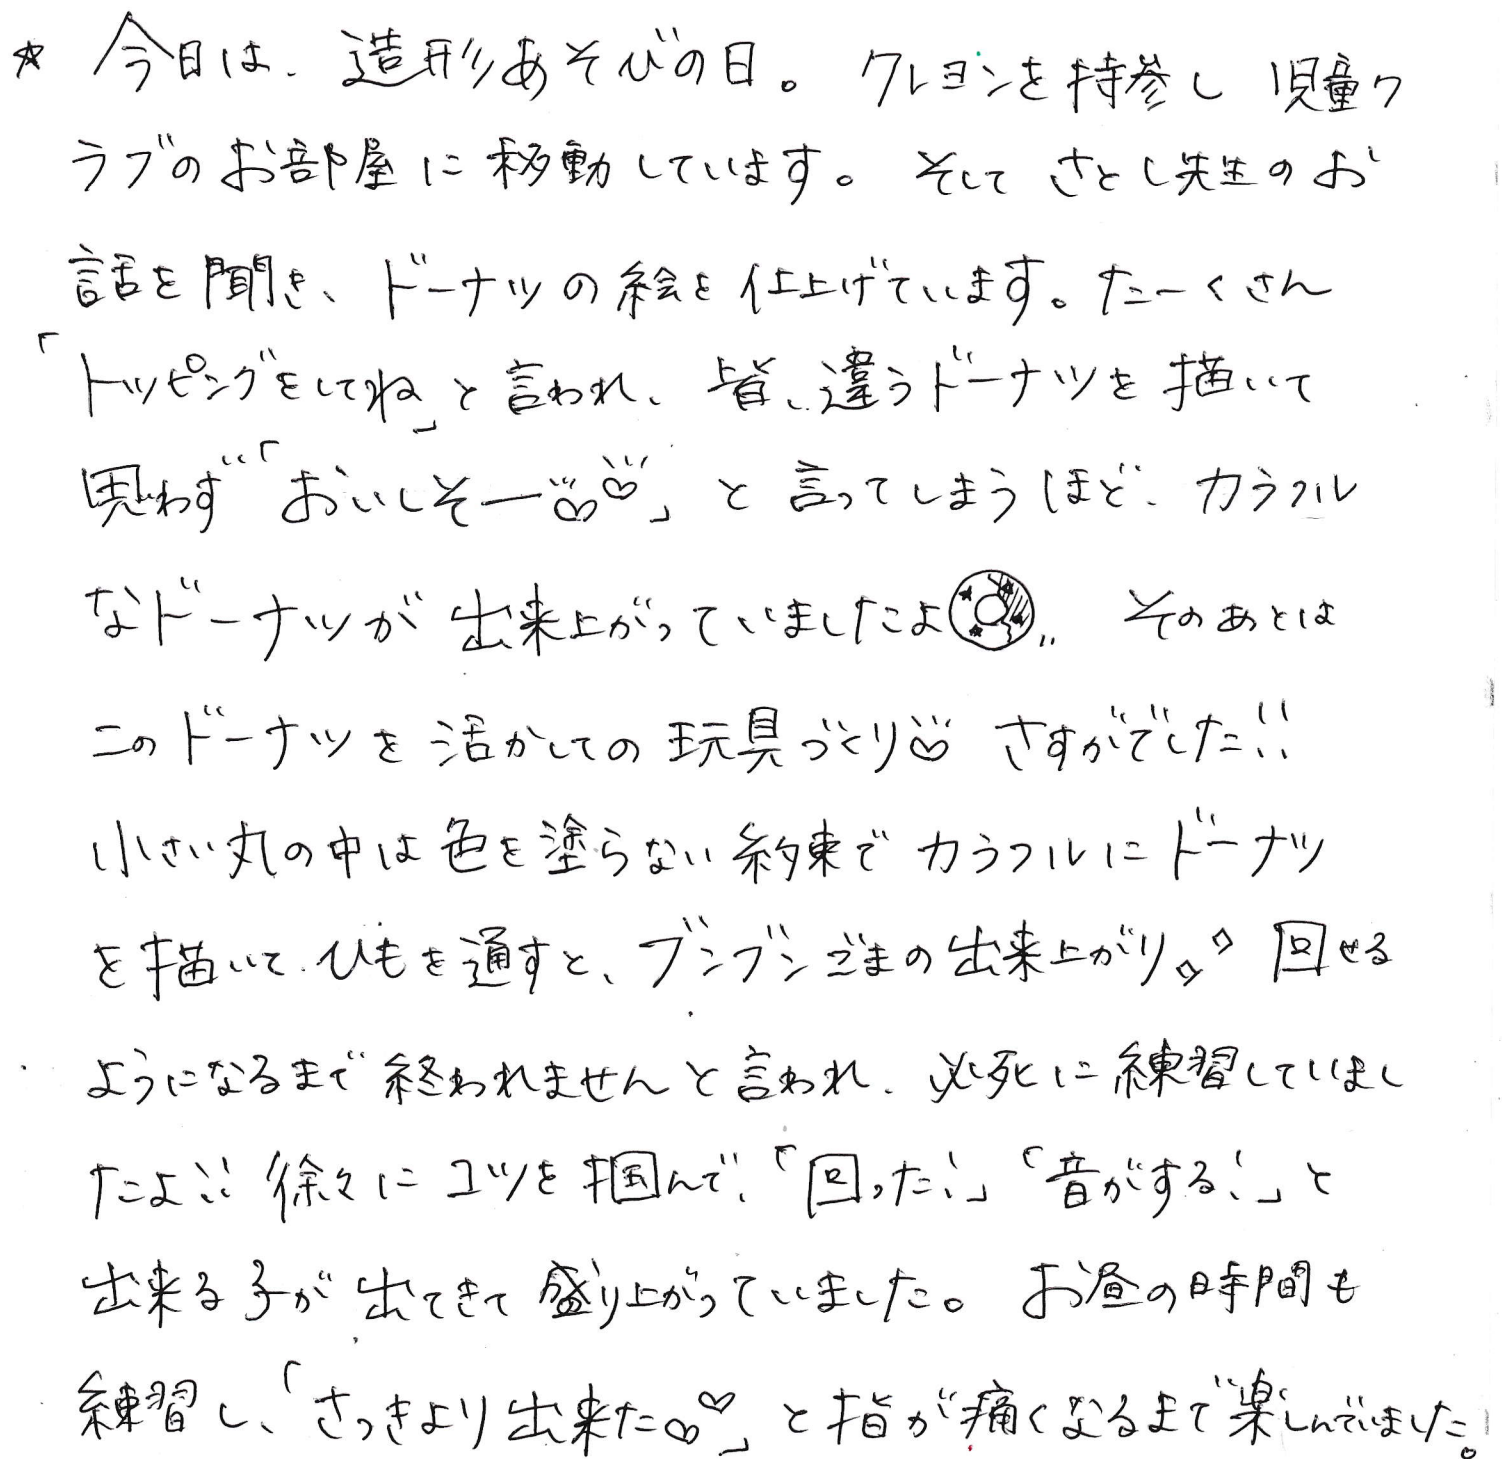 ☆ 今日は、造形あそびの日。クレヨンを持参し児童ク
ラブのお部屋に移動しています。そしてさとし先生のお
話を聞き、ドーナツの絵を仕上げています。たーくさん
「トッピングをしてね」と言われ、皆、違うドーナツを描いて
思わず「おいしそー♡♡」と言ってしまうほど、カラフル
なドーナツが出来上がっていましたよ そのあとは
このドーナツを活かしての玩具づくり♡さすがでした!!
小さい丸の中は色を塗らない約束でカラフルにドーナツ
を描いて、ひもを通すと、ブンブンごまの出来上がり。回せる
ようになるまで終われませんと言われ、必死に練習していまし
たよ!!徐々にコツを掴んで、「回った!」「音がする!」と
出来る子が出てきて盛り上がっていました。お昼の時間も
練習し、「さっきより出来た♡♡」と指が痛くなるまで楽しんでいました。